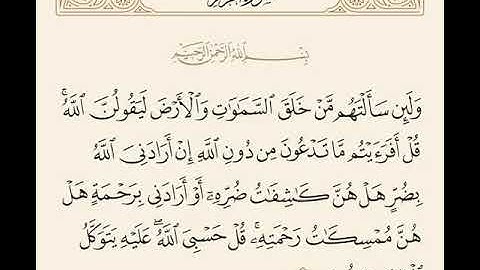 بِسْمِ ٱللَّهِ ٱلرَّحْمَٰنِ ٱلرَّحِيمِ
وَلَئِن سَأَلْتَهُم مَّنْ خَلَقَ ٱلسَّمَٰوَٰتِ وَٱلْأَرْضَ لَيَقُولُنَّ ٱللَّهُ ۚ
قُلْ أَفَرَءَيْتُم مَّا تَدْعُونَ مِن دُونِ ٱللَّهِ إِنْ أَرَادَنِىَ ٱللَّهُ
بِضُرٍّ هَلْ هُنَّ كَٰشِفَٰتُ ضُرِّهِۦٓ أَوْ أَرَادَنِى بِرَحْمَةٍ هَلْ
هُنَّ مُمْسِكَٰتُ رَحْمَتِهِۦ ۚ قُلْ حَسْبِىَ ٱللَّهُ ۖ عَلَيْهِ يَتَوَكَّلُ